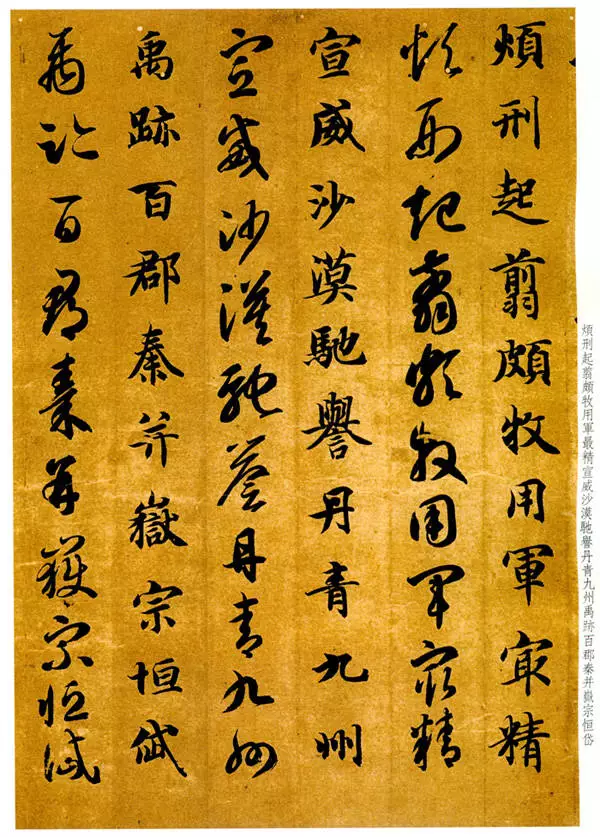 煩刑起翦頗牧用軍㝡精
煩刑起翦頗牧用軍㝡精
宣威沙漠馳譽丹青九州
宣威沙漠馳譽丹青九州
禹跡百郡秦并嶽宗恒岱
禹跡百郡秦并嶽宗恒岱
煩刑起翦頗牧用軍最精宣威沙漠馳譽丹青九州禹跡百郡秦并嶽宗恒岱